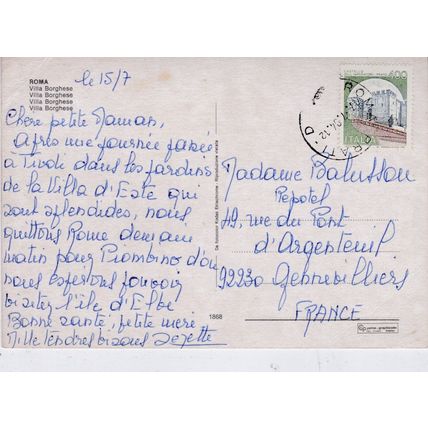 ROMA
Villa Borghese
Villa Borghese
Villa Borghese
Villa Borghese
le 15/7
Chère petite Maman,
Après une journée passée
à Tivoli dans les jardins
de la Villa d'Este qui
sont splendides, nous
quittons Rome demain
matin pour Piombino d'où
nous espérons pouvoir
visiter l'île d'Elbe
Bonne santé, petite mère
Mille tendres bisous
Madame
Pepotel
49, rue du Pont
d'Argenteuil
92230 Gennevilliers
FRANCE
400
ITALIA
1868